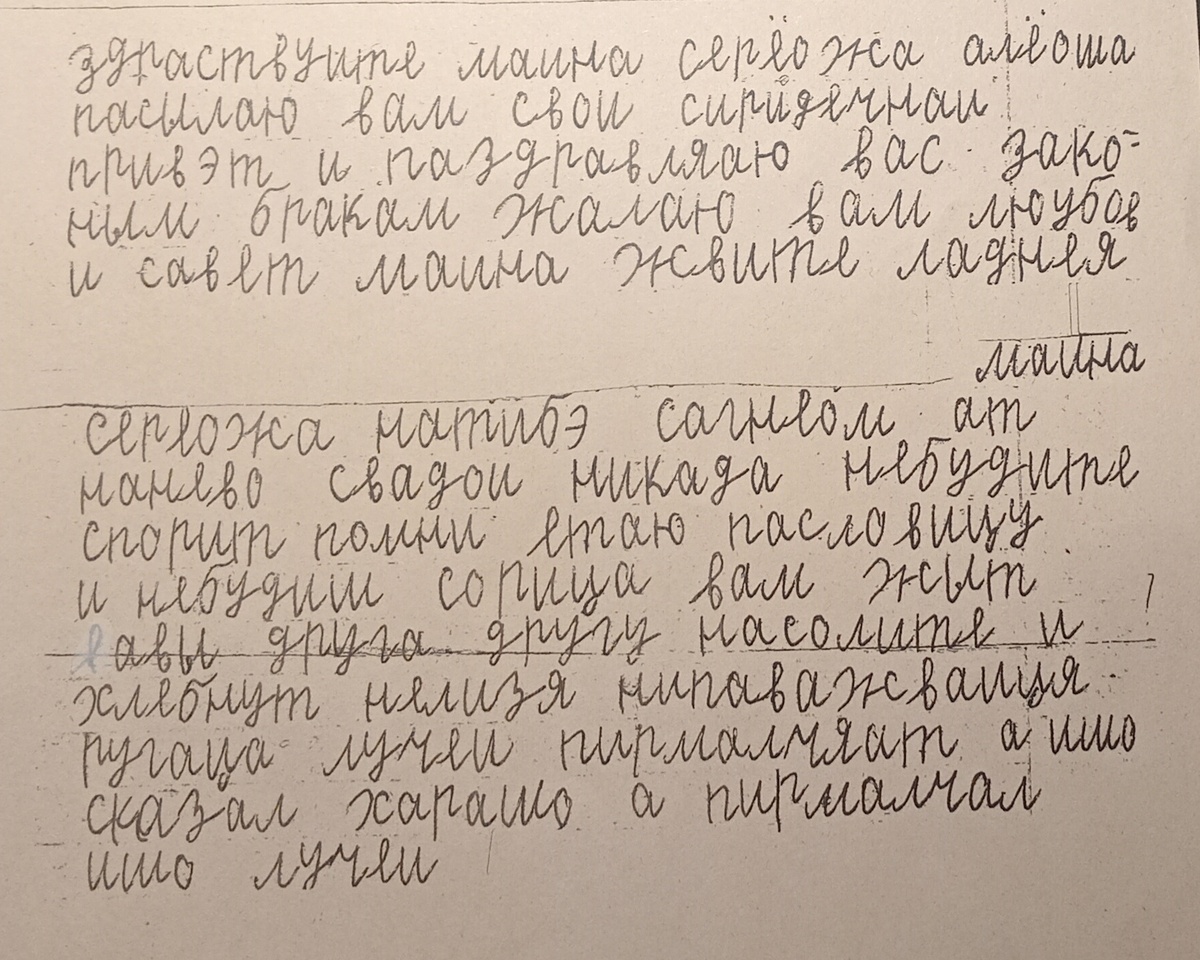 здраствуите маина серёожа алёоша
пасылаю вам свои сиридечнаи
привэт и паздравляаю вас зако-
ным бракам жалаю вам люубов
и савет маина жвите ладнея
маина
сереожа натибэ сагнеом ат
нанево свадои никада небудите
спорит помни етаю пасловицу
и небудиш сорица вам жыт
авы друга другу насолите и
хлебнут нелизя нипаважваиця
ругаца лучеи пирмалчяат а ишо
сказал харашо а пирмалчал
ишо лучеи